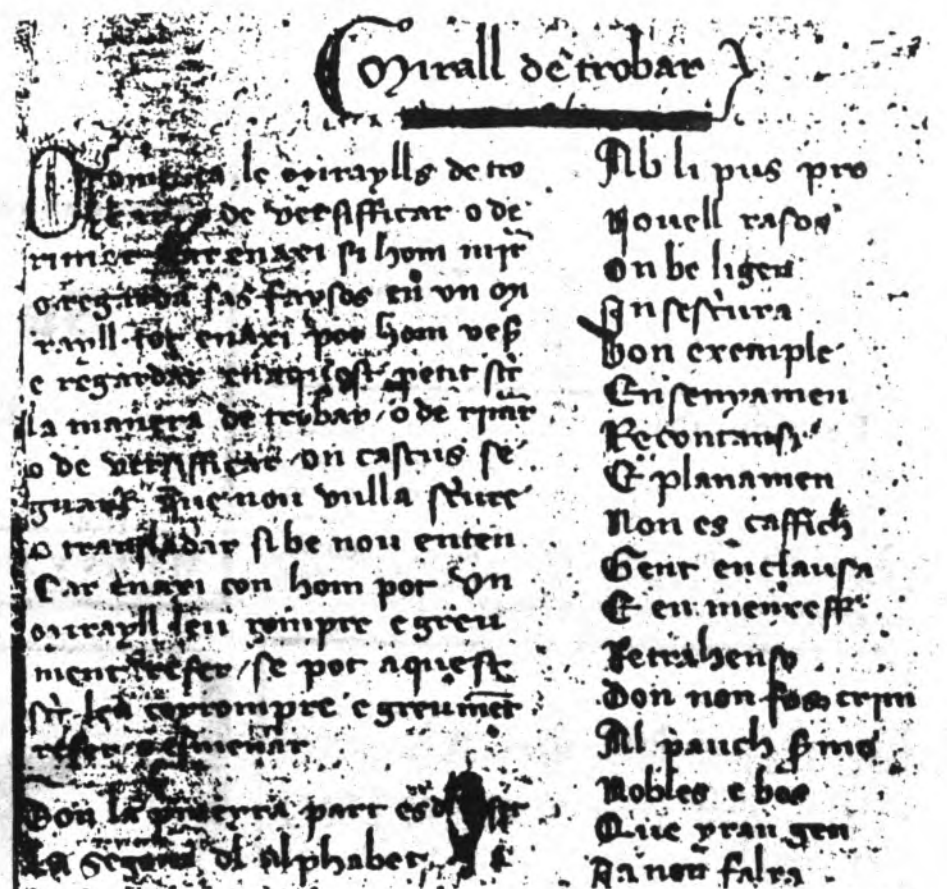 Mirall de trobar
Comensa le miraylls de tro
bar o de versifficar o de
rimar car enaxi si hom mir
o regarda sas faysos en un mi
rayll tot enaxi pot hom veser
e regardar en aquest petit scrit
la manera de trobar o de rimar
o de versifficar on cascus se
guart que nou vulla scriure
o transladar si be nou enten
Car enaxi con hom pot un
mirayll leu rompre e greu
ment refer se pot aquest
scrit leu corrompre e greument
refer o esmenar
Don la primeyra part es
La segona dl Alphabet
Ab li pus pro
Novell rasos
On be ligen
An scriura
Bon exemple
Ensenyamen
Recontan
E planamen
Non es caffich
Gent enclausa
E en
Retrahenso
Don non fos crim
Al pauch
Nobles e bos
Que yran gen
Ia non falra